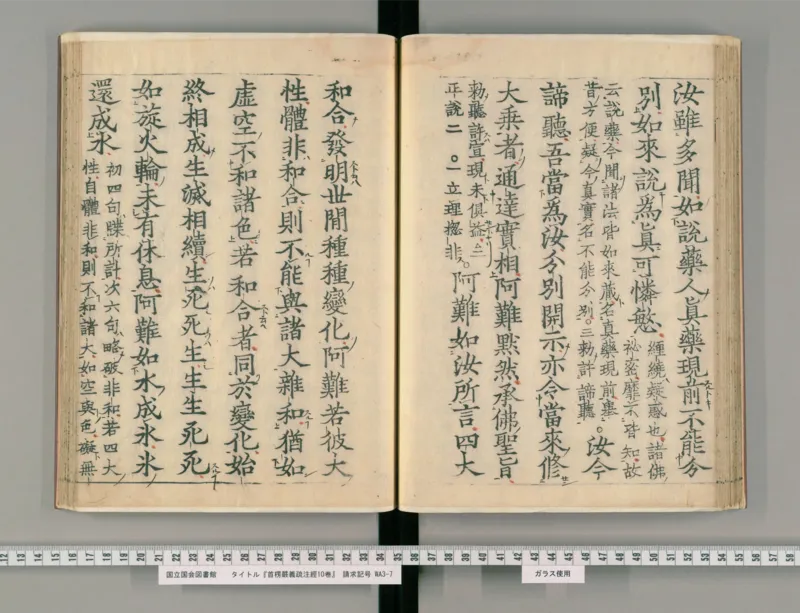 汝雖多聞如說藥人眞藥現前不能分
別如來說爲眞可憐愍
纏繞疑惑也諸佛
祕密靡不皆知故
云說藥今聞諸法皆如來藏名真藥現前蓋
昔方便疑今真實名不能分別。三勑許諦聽
。汝今
諦聽吾當爲汝分別開示亦令當來修
大乘者通達實相阿難默然承佛聖旨
勑聽許宣現未俱益。三
正說二 。一立理揔非。
阿難如汝所言四大
和合發明世間種種變化阿難若彼大
性體非和合則不能與諸大雜和猶如
虛空不和諸色若和合者同於變化始
終相成生滅相續生死死生生生死死
如旋火輪未有休息阿難如水成氷氷
還成水
初四句牒所計次六句略破非和若四大
性自體非和則不和諸大如空與色礙無
国立国会図書館 タイトル『首楞嚴義疏注經10巻』 請求記号 WA3-7
ガラス使用